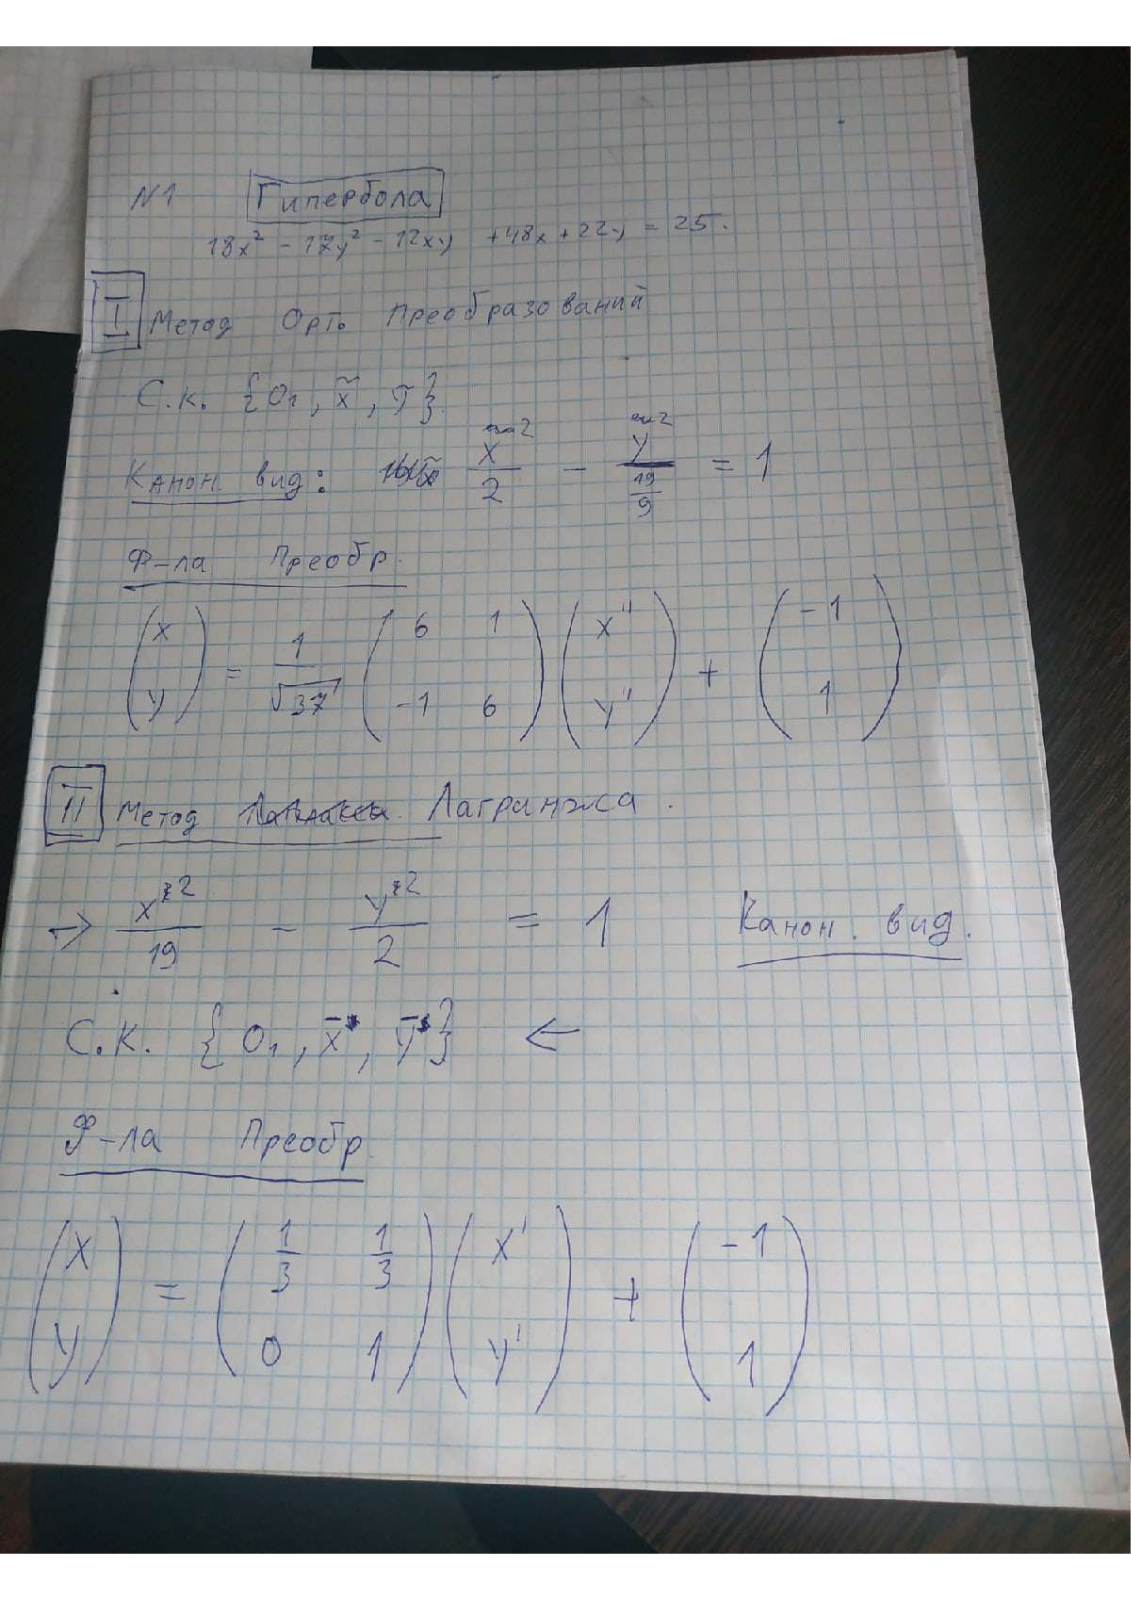 N1 Гипербола
18x² - 17y² - 12xy + 48x + 22y = 25.
I Метод Орт. Преобразований
С.к. {O₁, x̃, ỹ}
Канон. вид: x²/2 - y²/(19/9) = 1
Ф-ла Преобр.
(x y) = 1/√37 (6 1 -1 6) (x'' y'') + (-1 1)
II Метод Лагранжа.
→ x²/19 - y²/2 = 1 Канон. вид.
С.К. {O₁, x̄*, ȳ*} ←
Ф-ла Преобр.
(x y) = (1/3 1/3 0 1) (x' y') + (-1 1)